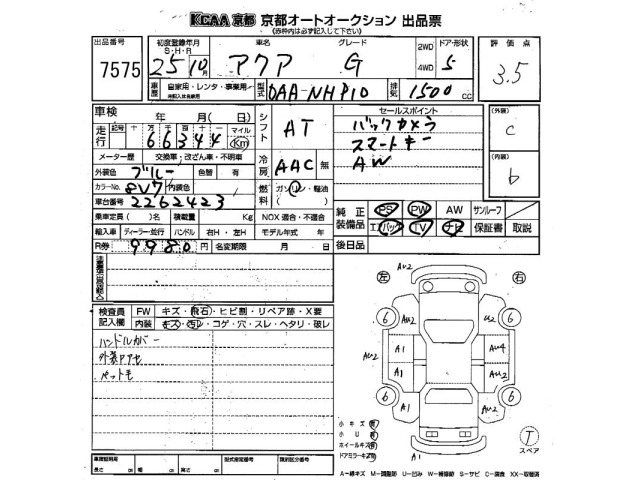 KCAA 京都 京都オートオークション 出品票
(赤枠内は必ず記入して下さい)
出品番号 初度登録年月 車名 グレード 2WD ドア・形状 評価点
S・H・R
7575 25 10月 アクア G 4WD 5 3.5
車歴 自家用・レンタ・事業用 型式 DAA-NHP10 排気 1500 CC
車検 年 月(日) シフト AT セールスポイント (外装)
バックカメラ C
走行 記号 十 万 千 百 十 一 マイル
66344 Km
スマートキー
メーター歴 交換車・改ざん車・不明車 冷房 AAC 無 AW (内装)
外装色 ブルー 色替 有 b
カラーNo. 8V7 内装色 燃料 ガソリン・軽油
車台番号 2262423 ( )
乗車定員( )名 積載量 Kg NOX 適合・不適合 純正装備品 PS PW AW サンルーフ
輸入車 ディーラー・並行 ハンドル 右H・左H モデル年式 年 エアバック TV ナビ 保証書 取説
R券 9980 円 名変期限 月 日 後日品
検査員記入欄 FW キズ・飛石・ヒビ割・リペア跡・X要
内装 キズ・汚レ・コゲ・穴・スレ・ヘタリ・破レ
ハンドルカバー
外装アクセ
ペット毛
左 右
AU2
6 AU2 U2 6
AU2 A1 AU4
A1 AU2 AU2
6 6
A1 AU2
A1
小キズ 有
小U 有
ホイールキズ 有
ドアミラーキズ 有
T
スペア
車庫証明用 型式指定番号 類別区分番号
長さ cm 幅 cm 高さ cm
A－線キズ M－調整跡 U－凹み W－補修跡 S－サビ C－腐食 XX－取替済